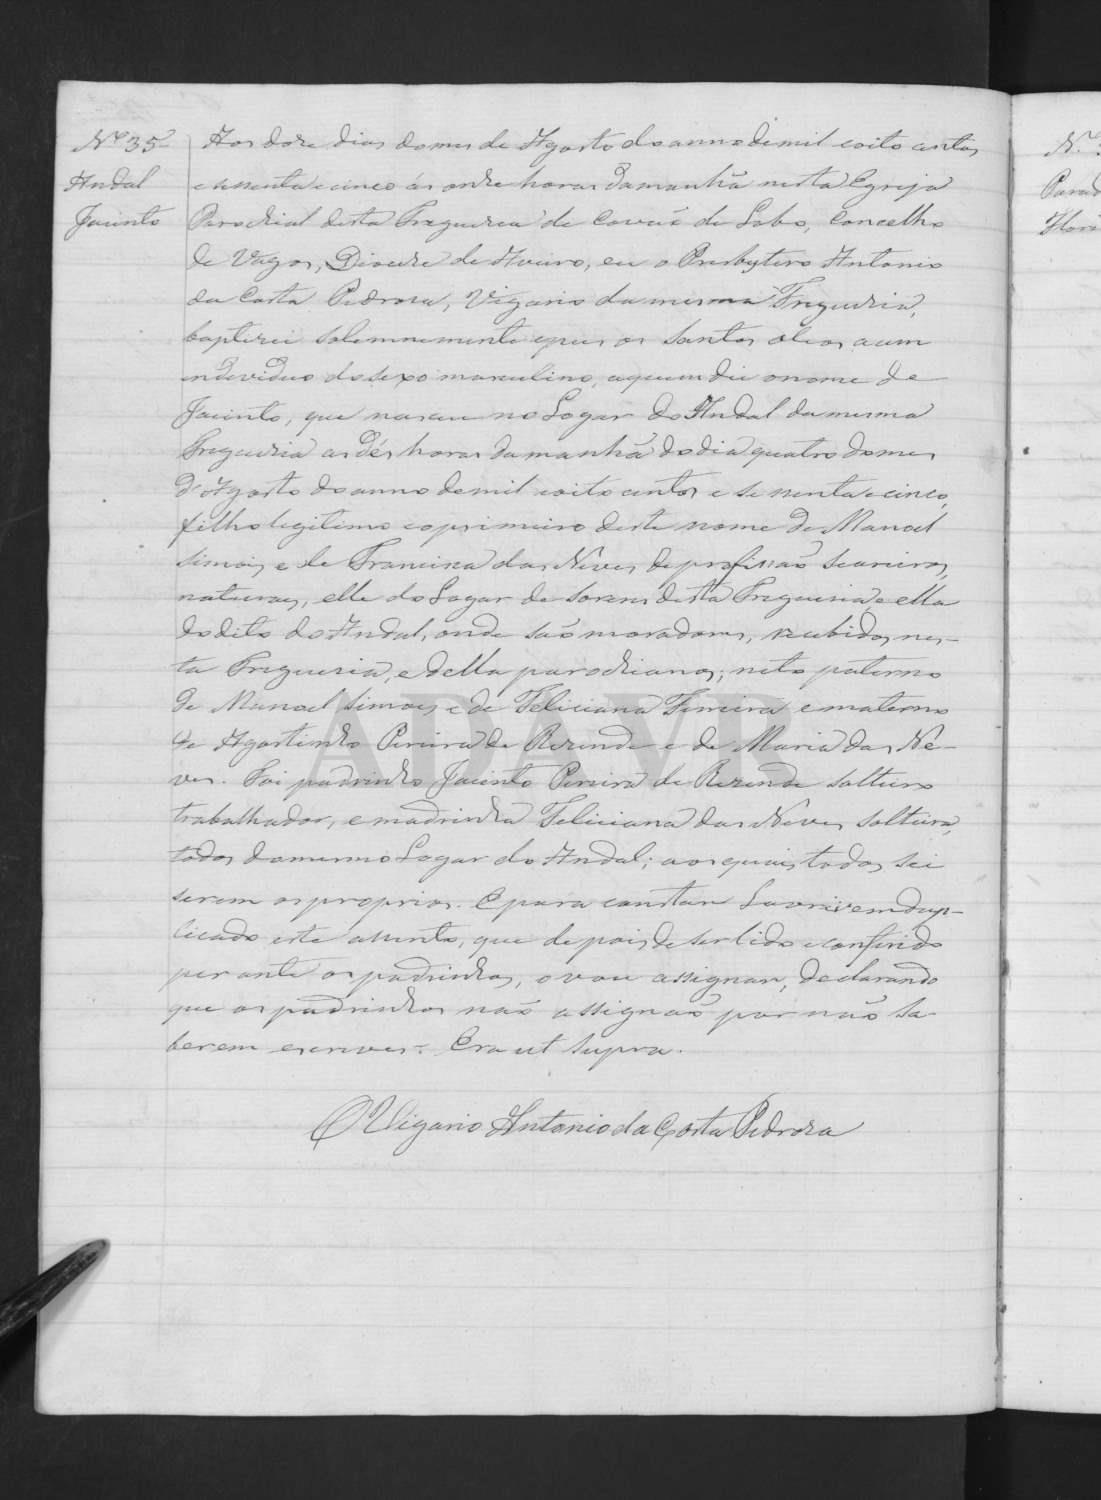 Nº 35
Andal
Jacinto
Aos doze dias do mes de Agosto do anno de mil e oito centos
e sessenta e cinco ás onze horas da manhã nesta Egreja
Parochial desta Freguezia de Covaõ de Lobo, Concelho
de Vagos, Diocese de Aveiro, eu o Presbytero Antonio
da Costa Pedroza, Vigario da mesma Freguezia,
baptizei solemnemente e puz os Santos oleos a um
individuo do sexo masculino, a quem dei o nome de
Jacinto, que nasceu no Logar do Andal da mesma
Freguezia as dés horas da manhã do dia quatro do mes
d'Agosto do anno de mil e oito centos e sessenta e cinco,
filho legitimo e o primeiro deste nome de Manoel
Simois e de Francisca das Neves de profissaõ seareiros,
naturaes, elle do Logar de desta Freguezia, e ella
do dito do Andal, onde saõ moradores, recebidos nes-
ta Freguezia, e della parochianos; neto paterno
de Manoel Simois e de Feliciana Ferreira e materno
de Agostinho Pereira de Rezende e de Maria das Ne-
ves. Foi padrinho Jacinto Pereira de Rezende solteiro
trabalhador, e madrinha Feliciana das Neves solteira,
todos do mesmo Logar do Andal; aos quais todos sei
serem os proprios. E para constar Lavrei em dup-
licado este assento, que depois de ser lido e conferido
perante os padrinhos, o vou assignar, declarando
que os padrinhos naõ assignaõ por naõ sa-
berem escrever. Era ut supra.
O Vigario Antonio da Costa Pedroza
ADAVR
Nº